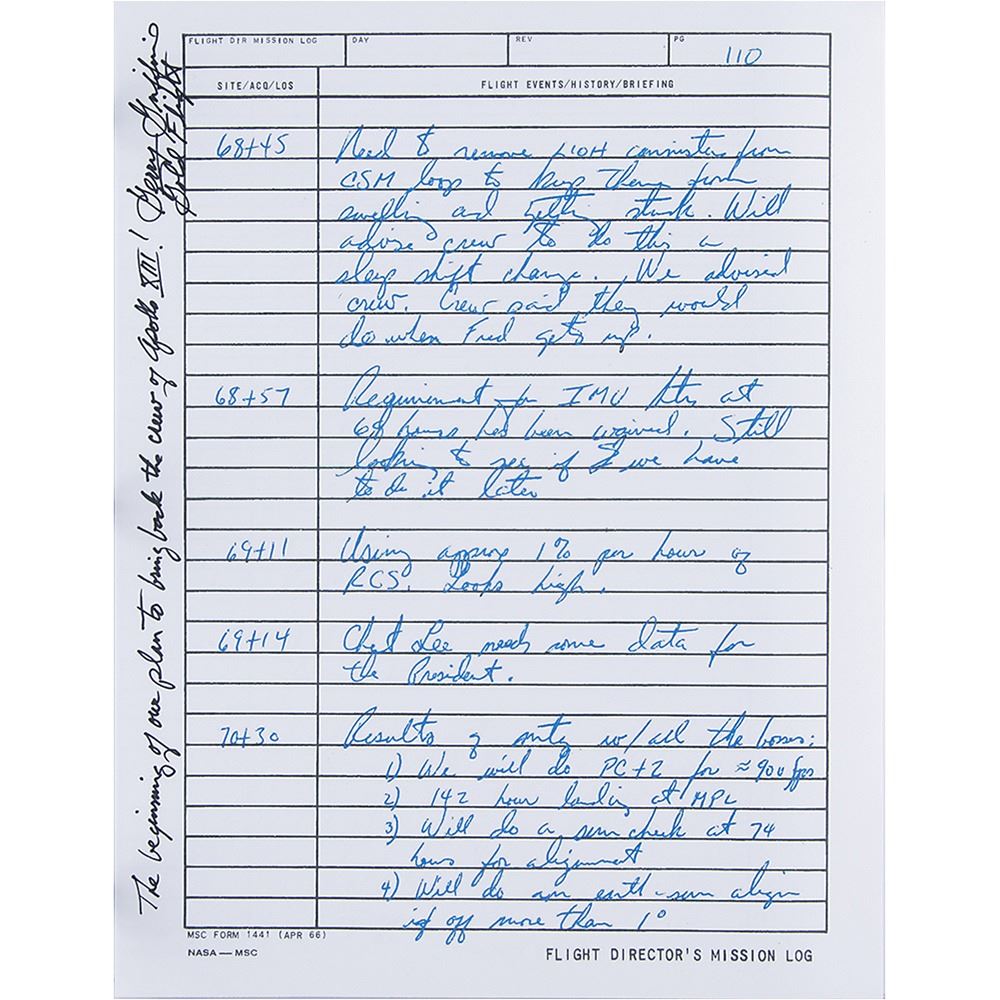 FLIGHT DIR MISSION LOG DAY REV PG 110
SITE/ACQ/LOS FLIGHT EVENTS/HISTORY/BRIEFING
68+45 Need to remove LiOH cannisters from
CSM loop to keep them from
swelling and getting stuck. Will
advise crew to do this @
sleep shift change. We advised
crew. Crew said they would
do when Fred gets up.
68+57 Requirement for IMU htrs at
hours has been waived. Still
looking to see if we have
to do it later
69+11 Using approx 1% per hour of
RCS. Looks high.
69+14 Chet Lee needs some data for
the President.
70+30 Results of mtg w/all the bosses:
1) We will do PC+2 for ≈ 900 fps
2) 142 hour landing at MPL
3) Will do a sun check at 74
hours for alignment
4) Will do an earth-sun align
if off more than 1°
MSC FORM 1441 (APR 66)
NASA — MSC FLIGHT DIRECTOR'S MISSION LOG
The beginning of our plan to bring back the crew of Apollo XIII! Gerry Griffin
Gold Flight